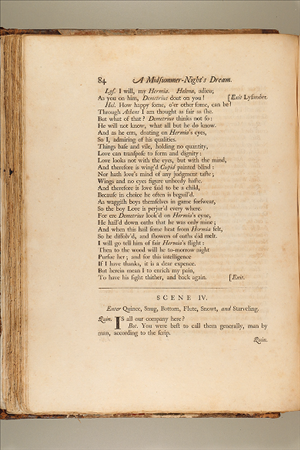 84 A Midsummer-Night's Dream.
Lys. I will, my Hermia. Helena, adieu;
As you on him, Demetrius doat on you! [Exit Lysander.
Hel. How happy some, o'er other some, can be!
Through Athens I am thought as fair as she.
But what of that? Demetrius thinks not so:
He will not know, what all but he do know.
And as he errs, doating on Hermia's eyes,
So I, admiring of his qualities.
Things base and vile, holding no quantity,
Love can transpose to form and dignity:
Love looks not with the eyes, but with the mind,
And therefore is wing'd Cupid painted blind:
Nor hath love's mind of any judgment taste;
Wings and no eyes figure unheedy haste.
And therefore is love said to be a child,
Because in choice he often is beguil'd.
As waggish boys themselves in game forswear,
So the boy Love is perjur'd every where.
For ere Demetrius look'd on Hermia's eyne,
He hail'd down oaths that he was only mine;
And when this hail some heat from Hermia felt,
So he dissolv'd, and showers of oaths did melt.
I will go tell him of fair Hermia's flight:
Then to the wood will he to-morrow night
Pursue her; and for this intelligence
If I have thanks, it is a dear expence.
But herein mean I to enrich my pain,
To have his sight thither, and back again. [Exit.
SCENE IV.
Enter Quince, Snug, Bottom, Flute, Snout, and Starveling.
Quin. IS all our company here?
Bot. You were best to call them generally, man by
man, according to the scrip.
Quin.